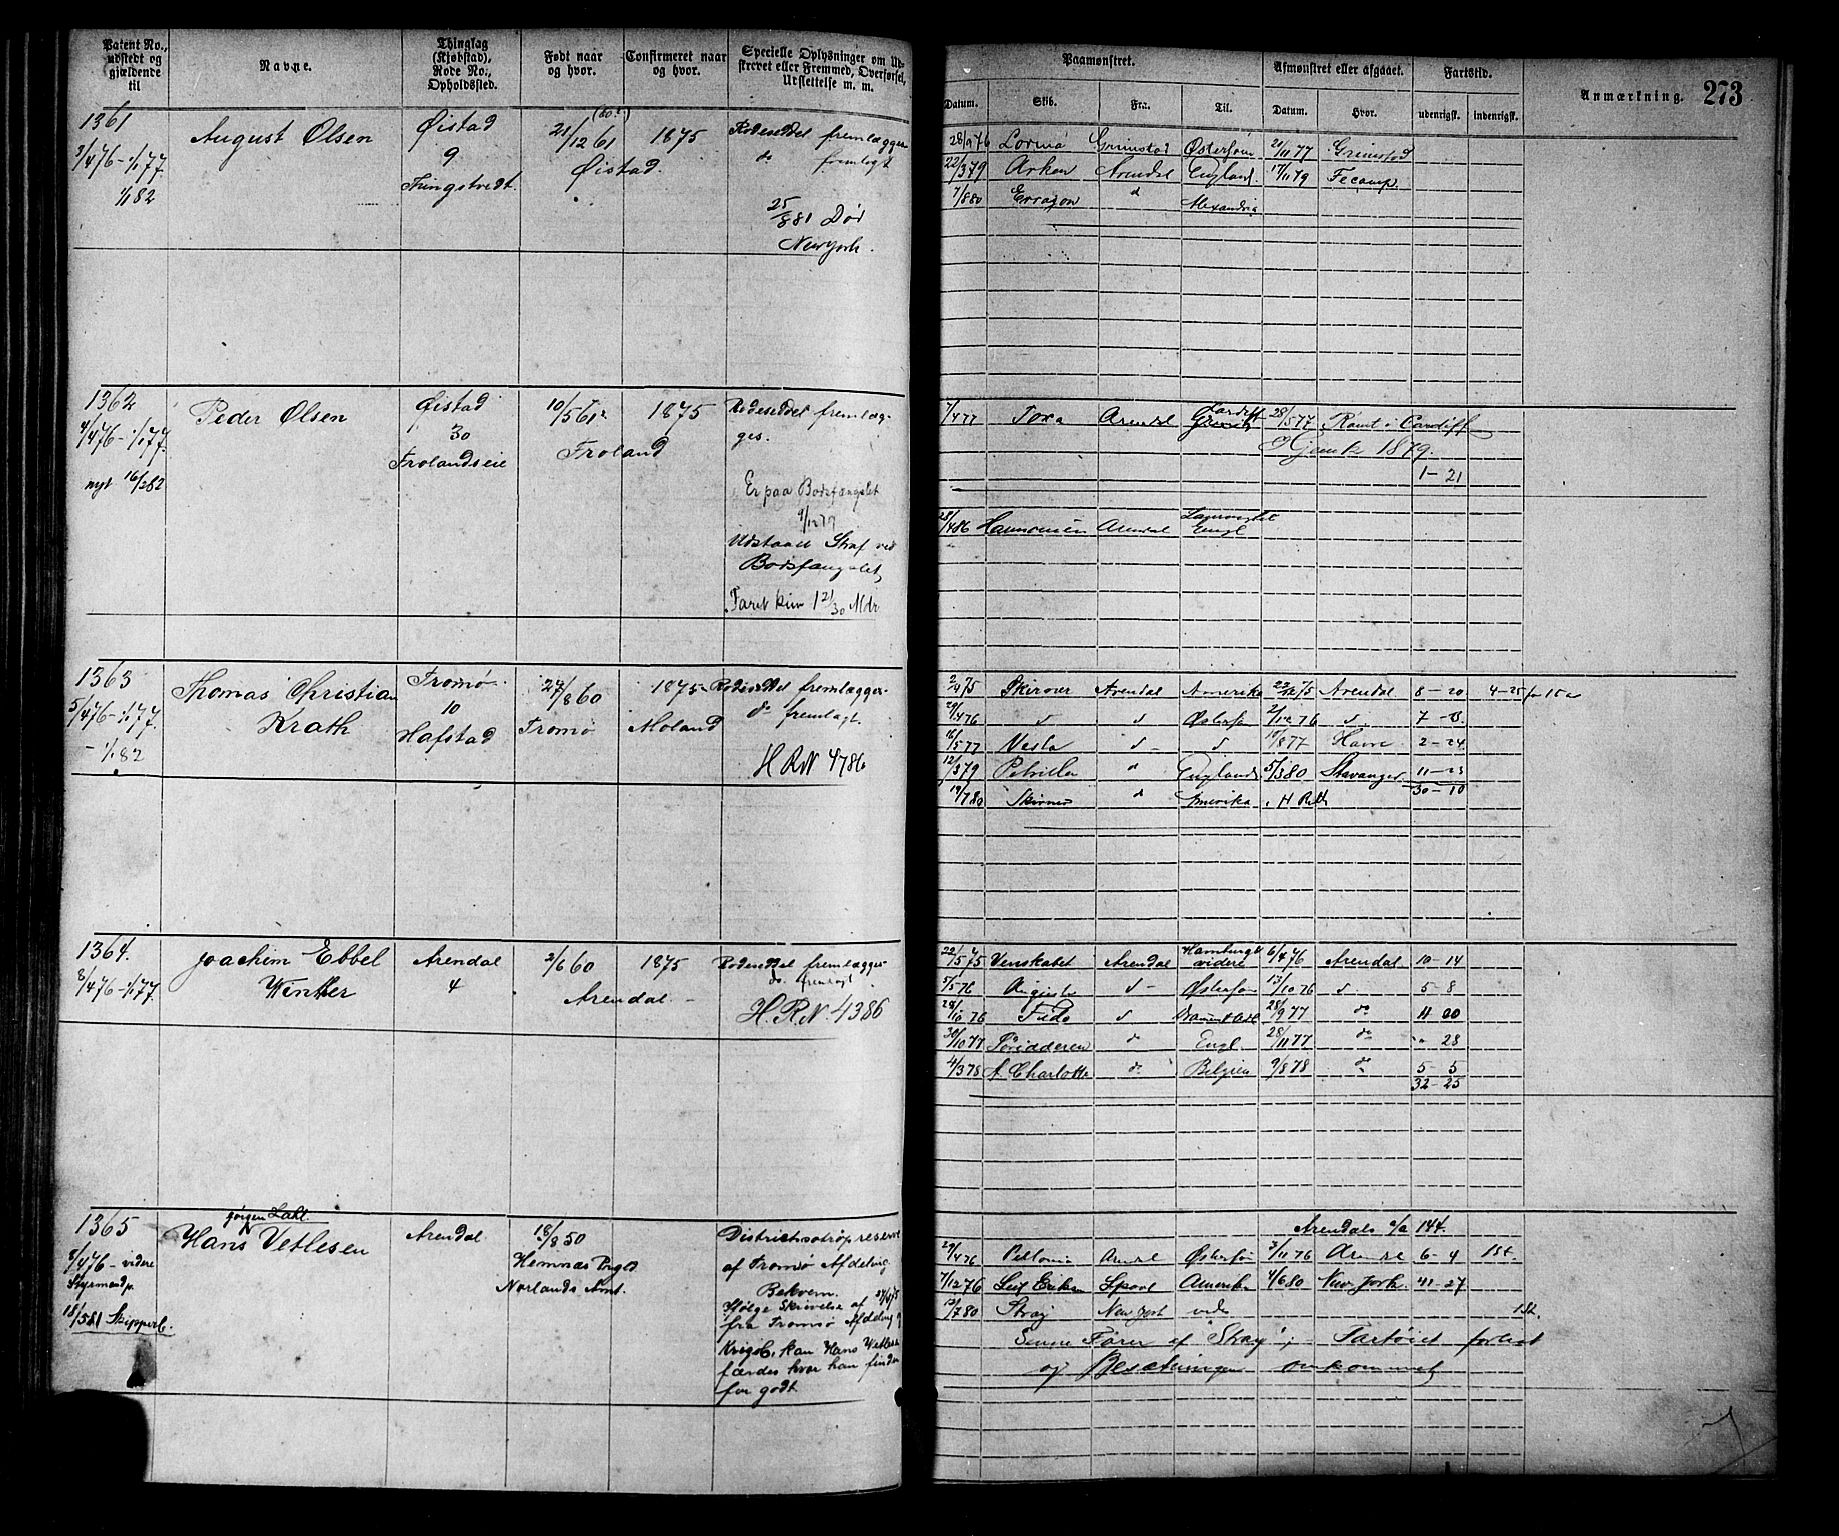 Patent No., udstedt og gjældende til
Navne.
Thinglag (Kjøbstad), Rode No., Opholdssted.
Født naar og hvor.
Confirmeret naar og hvor.
Specielle Oplysninger om Udskrevet eller Fremmed, Overførsel, Udslettelse m. m.
Paamønstret.
Datum.
Skib.
Fra.
Til.
Afmønstret eller afgaaet.
Datum.
Hvor.
Fartstid.
udenrigsk.
indenrigsk.
Anmærkning.
273
1361
3/4 76 - 1/1 77.
1/1 82
August Olsen
Øistad
9
21/12 61
Øistad.
1875
Rodeseddel fremlægges
do fremlagt
25/8 81 Død
Newyork.
28/9 76 Grimstad Østersøn 21/11 77 Grimstad
22/3 79 Arken Arendal England. 17/11 79 Fecamp.
7/8 80 d Alexandria
1362
4/4 76 - 1/1 77.
nyt 16/2 82
Peder Olsen
Øistad
30
Frolandseie
10/5 61
Froland
1875
Rodeseddel fremlægges.
Er paa Bodsfængslet
9/12 79
Udstaaet Straf ved
Bodsfængslet
Faret kun 1 21/30 Mdr
7/4 77 Toxa Arendal Cardiff 28/5 77 Rømt i Cardiff
Hjemk 1879.
1 - 21
28/4 86 Arendal Engl
1363
5/4 76 - 1/1 77.
- 1/1 82
Thomas Christian
Krath
Tromø
10
Hafstad
27/8 60
Tromø
1875
Moland
Rodeseddel fremlægges
do fremlagt
H R N 4786
2/4 75 Skirner Arendal Amerika 22/12 75 Arendal 8 - 20 4 - 25
29/4 76 d d Østersø 2/12 76 d. 7 - 3.
16/5 77 Vesta d d 19/8 77 Havre 2 - 24
12/3 79 Petrilla d England 5/3 80 Stavanger 11 - 23
30 - 10
19/7 80 Skirner d Amerika
1364.
8/4 76 - 1/1 77.
Joachim Ebbel
Winther
Arendal
4
2/6 60
Arendal
1875
Rodeseddel fremlægges
do. fremlagt
H. R. N. 4386
22/5 75 Venskabet Arendal Hamburg & videre 6/4 76 Arendal 10 - 14
5/5 76 d Østersøn 13/10 76 d. 5 - 8
28/10 76 Fido d 28/9 77 do 11 00
30/10 77 do Engl. 28/11 77 do " 28
4/3 78 A Charlotte do Belgien 9/8 78 do 5 - 5
32 - 25
1365
8/4 76 - videre
Styrmandp.
18/5 81 Skipperb.
Jørgen Dahl
Hans Vetlesen
Arendal
18/8 50
Hemnæs
Norlands Amt.
Districtstropsreserve
af Tromø Afdeling
Bekvem.
Ifølge Skrivelse af
fra Tromø Afdeling
Krigsb. kan Hans Vetlesen
færdes hvor han finder
for godt.
Arendals a/a 144.
29/4 76 Arendal Østersøn 3/11 76 6 - 4 154.
7/12 76 Leif Eriksen Amerika 4/6 80 New York 41 - 27
13/7 80 Stray New York vide 152.
Fører af "Stray"; Fartøiet forlist
og Besætningen omkommet